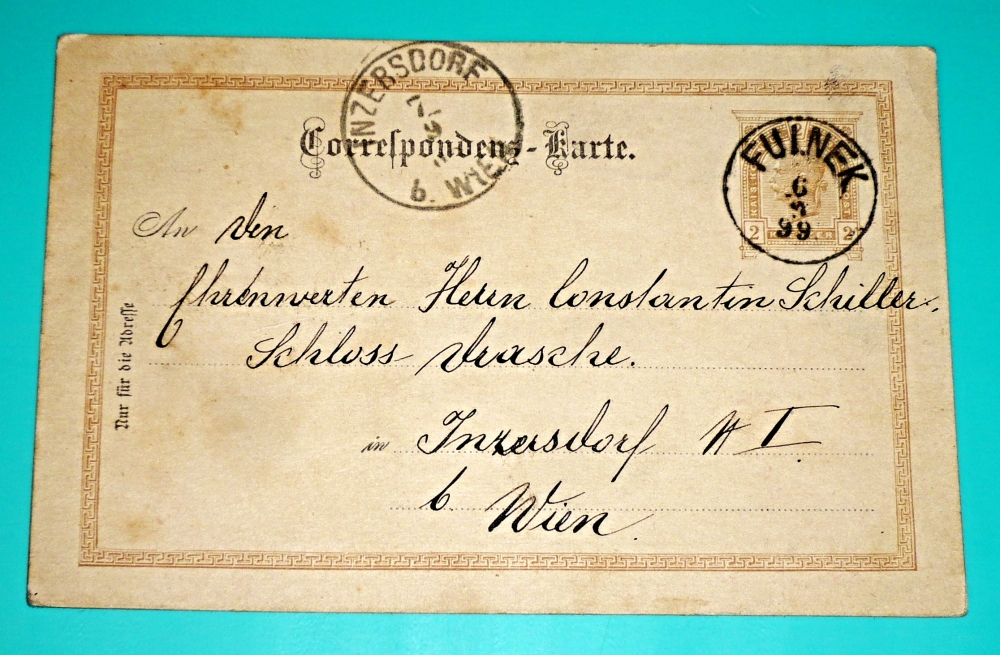 INZERSDORF
7
9
b. WIEN
Correspondenz-Karte.
FULNEK
6
99
2 2
An den
Ehrenwerten Herrn Constantin Schiller,
Schloss Drasche.
Nur für die Adresse
in Inzersdorf # I
b. Wien